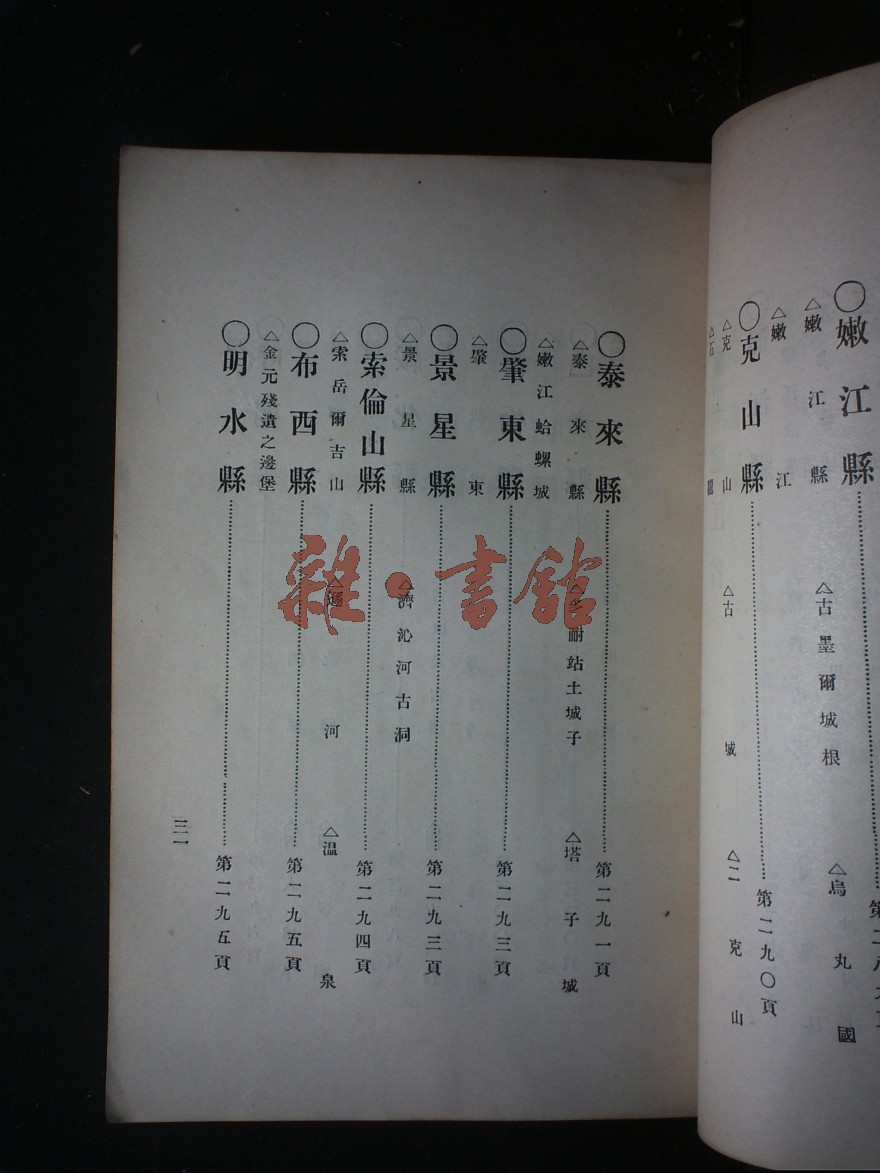 ○嫩江縣
△嫩江縣 △古墨爾城根 △烏丸國
△嫩江
○克山縣 第二九〇頁
△克山 △古城 △二克山
○泰來縣 第二九一頁
△泰來縣 耐站土城子 △塔子城
△嫩江蛤螺城
○肇東縣 第二九三頁
△肇東
○景星縣 第二九三頁
△景星縣 △濟沁河古洞
○索倫山縣 第二九四頁
△索岳爾吉山 河 △温泉
○布西縣 第二九五頁
△金元殘遺之邊堡
○明水縣 第二九五頁
三一
雜·書館